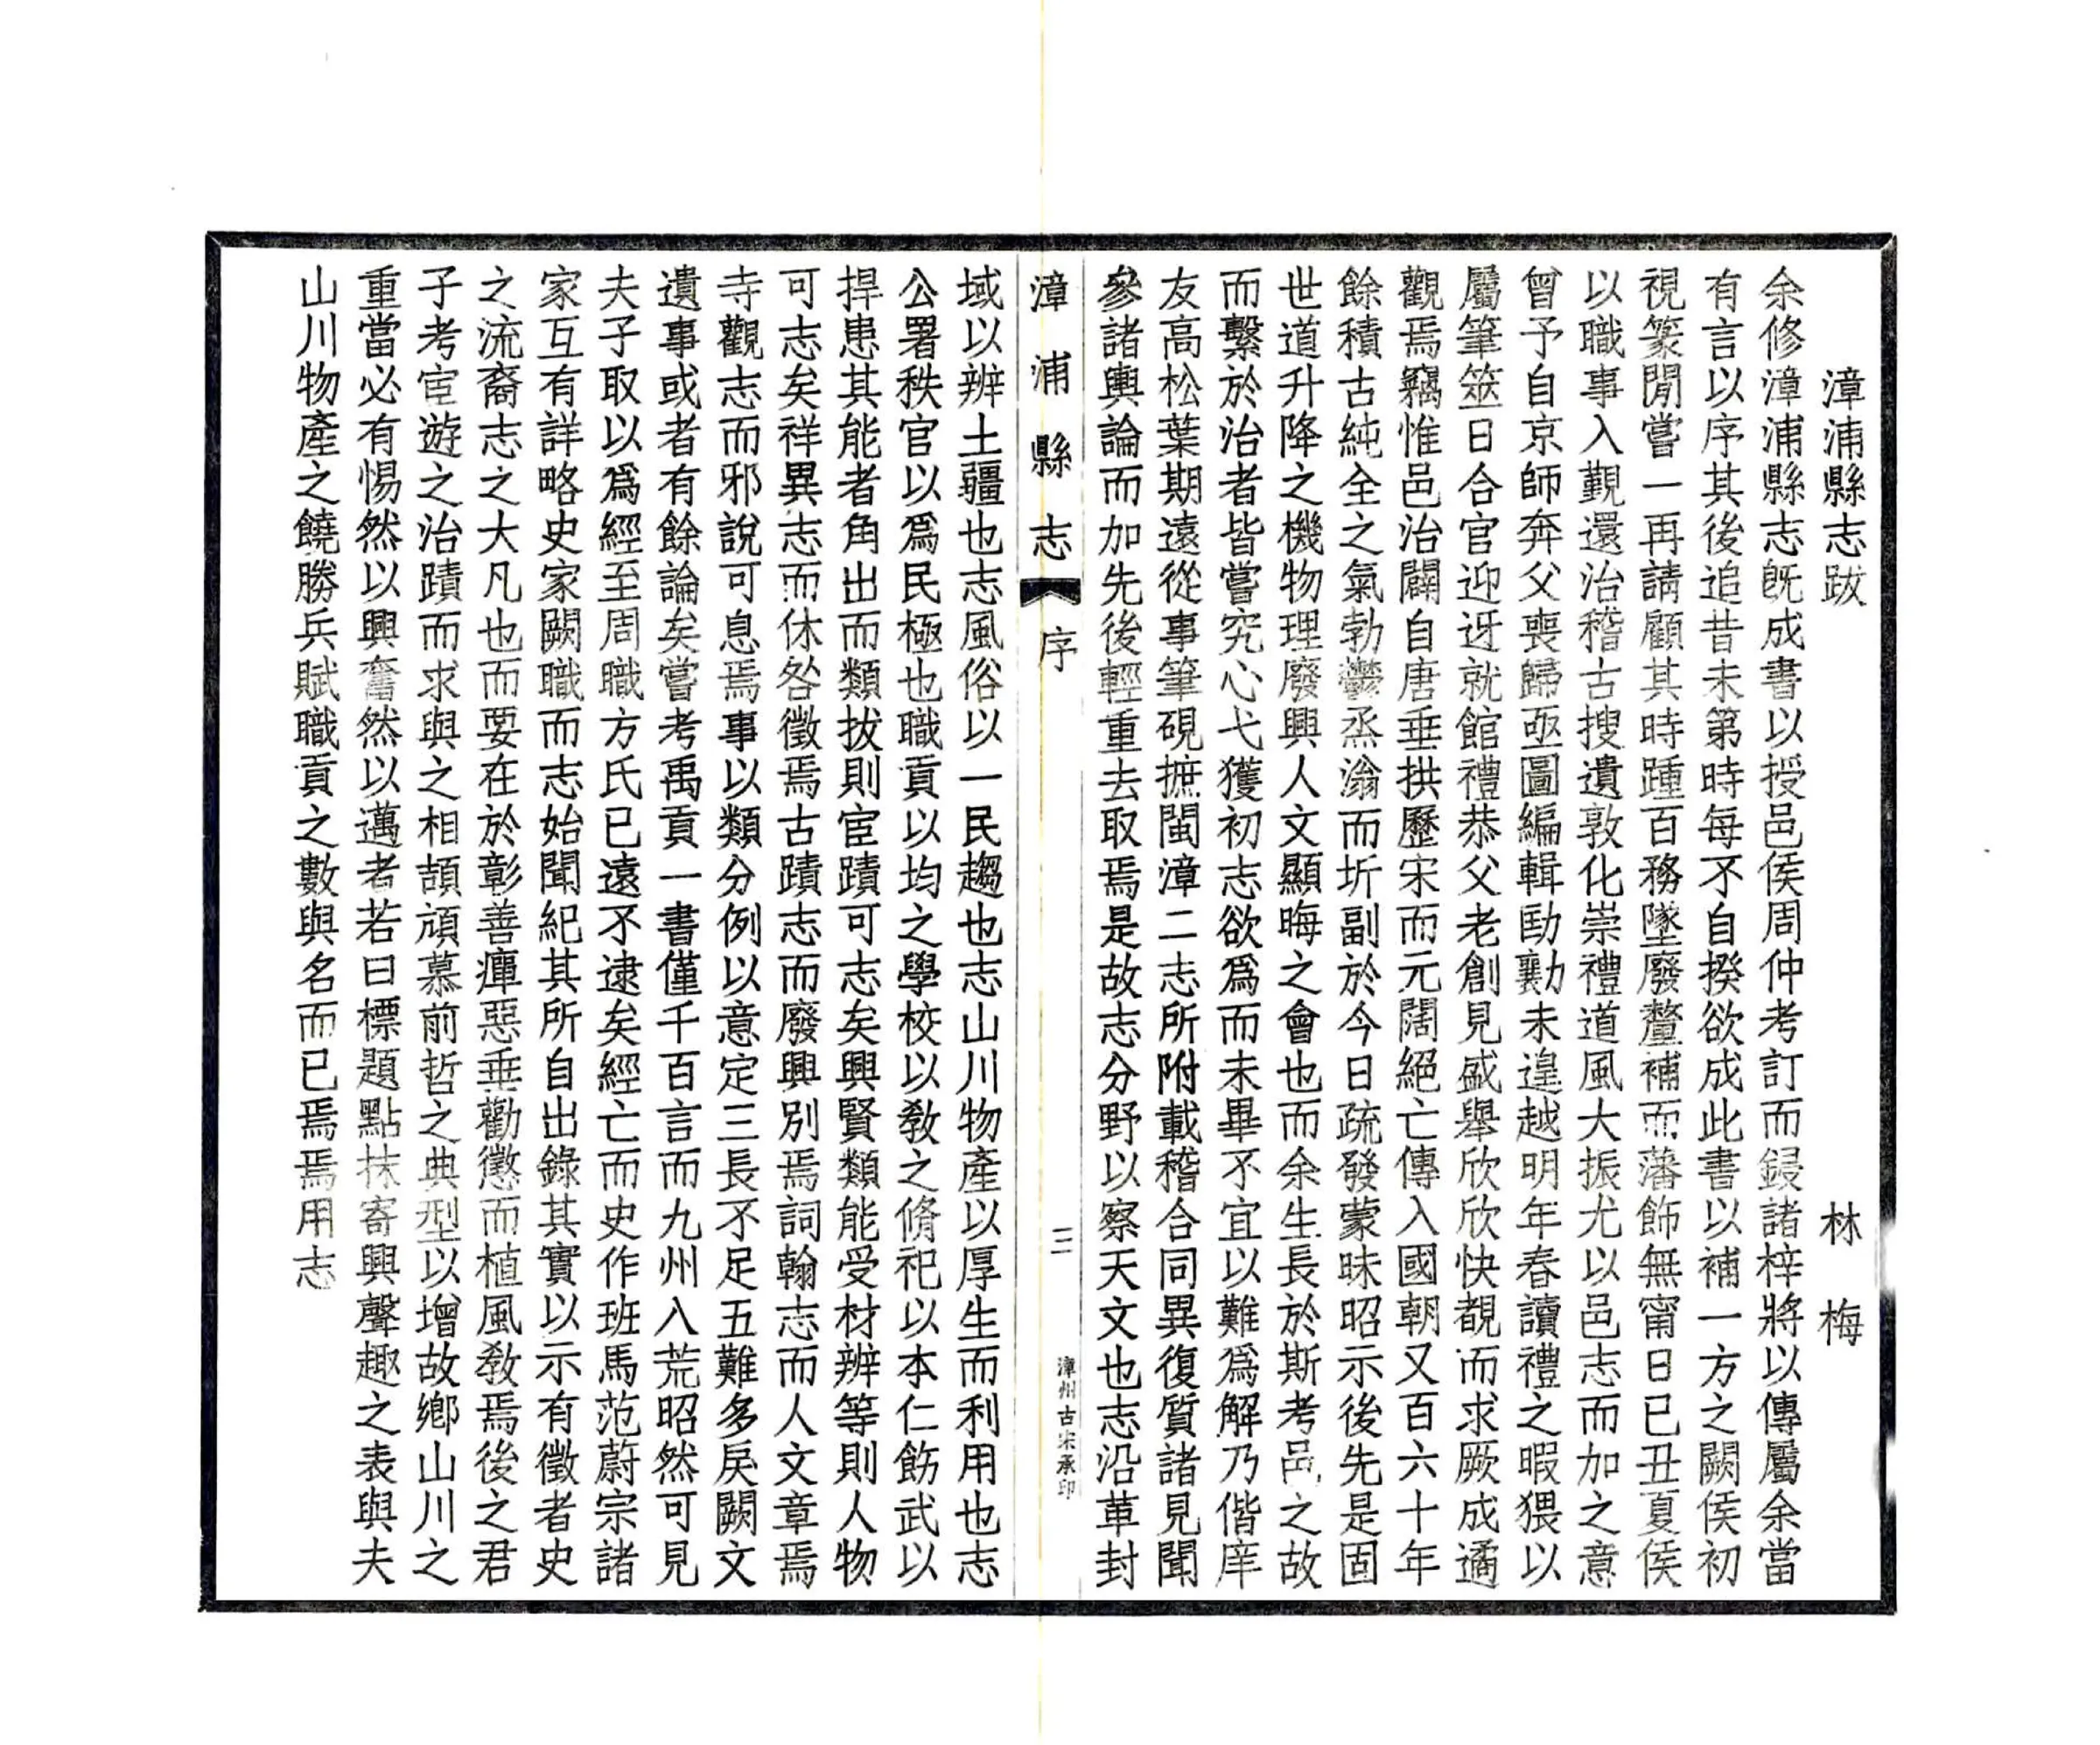 漳浦縣志跋
林　梅
余修漳浦縣志旣成書以授邑侯周仲考訂而鋟諸梓將以傳屬余當
有言以序其後追昔未第時每不自揆欲成此書以補一方之闕侯初
視篆閒嘗一再請顧其時踵百務墜廢釐補而藩飾無甯日已丑夏侯
以職事入覲還治稽古搜遺敦化崇禮道風大振尤以邑志而加之意
曾予自京師奔父喪歸亟圖編輯劻勷未遑越明年春讀禮之暇猥以
屬筆筮日合官迎迓就館禮恭父老創見盛舉欣欣快覩而求厥成遹
觀焉竊惟邑治闢自唐垂拱歷宋而元闊絕亡傳入國朝又百六十年
餘積古純全之氣勃鬱烝滃而圻副於今日疏發蒙昧昭示後先是固
世道升降之機物理廢興人文顯晦之會也而余生長於斯考邑之故
而繫於治者皆嘗究心弋獲初志欲爲而未畢不宜以難爲解乃偕庠
友高松葉期遠從事筆硯摭閩漳二志所附載稽合同異復質諸見聞
參諸輿論而加先後輕重去取焉是故志分野以察天文也志沿革封
漳浦縣志
序
三
漳州古宋承印
域以辨土疆也志風俗以一民趨也志山川物產以厚生而利用也志
公署秩官以爲民極也職貢以均之學校以敎之脩祀以本仁飭武以
捍患其能者角出而類拔則宦蹟可志矣興賢類能受材辨等則人物
可志矣祥異志而休咎徵焉古蹟志而廢興別焉詞翰志而人文章焉
寺觀志而邪說可息焉事以類分例以意定三長不足五難多戾闕文
遺事或者有餘論矣嘗考禹貢一書僅千百言而九州入荒昭然可見
夫子取以爲經至周職方氏已遠不逮矣經亡而史作班馬范蔚宗諸
家互有詳略史家闕職而志始聞紀其所自出錄其實以示有徵者史
之流裔志之大凡也而要在於彰善癉惡垂勸懲而植風敎焉後之君
子考宦遊之治蹟而求與之相頡頏慕前哲之典型以增故鄉山川之
重當必有惕然以興奮然以邁者若曰標題點抹寄興聲趣之表與夫
山川物產之饒勝兵賦職貢之數與名而已焉焉用志